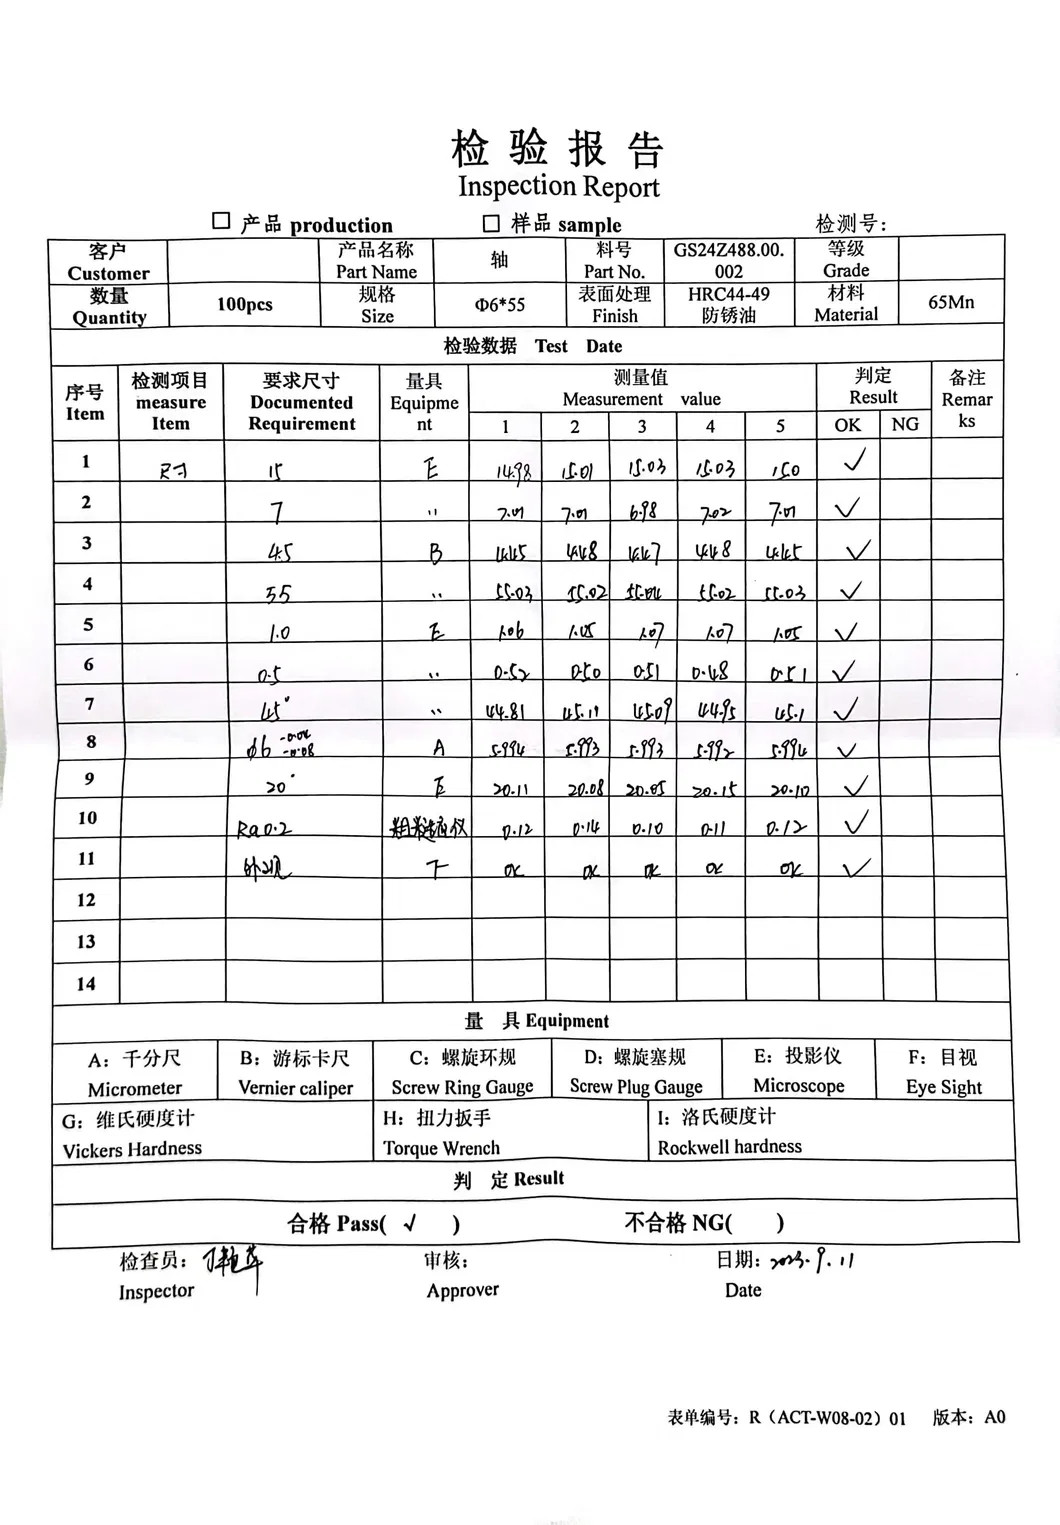 检 验 报 告
Inspection Report
□ 产品 production □ 样品 sample 检测号:
客户 Customer 产品名称 Part Name 轴 料号 Part No. GS24Z488.00.002 等级 Grade
数量 Quantity 100pcs 规格 Size Φ6*55 表面处理 Finish HRC44-49 防锈油 材料 Material 65Mn
检验数据 Test Date
序号 Item 检测项目 measure Item 要求尺寸 Documented Requirement 量具 Equipment 测量值 Measurement value 判定 Result 备注 Remarks
1 2 3 4 5 OK NG
1 尺寸 15 E 14.98 15.01 15.03 15.03 15.0 ✓
2 7 〃 7.01 7.01 6.98 7.02 7.01 ✓
3 4.5 B 4.45 4.48 4.47 4.48 4.45 ✓
4 55 〃 55.03 55.02 55.04 55.02 55.03 ✓
5 1.0 E 1.06 1.05 1.07 1.07 1.05 ✓
6 0.5 〃 0.52 0.50 0.51 0.48 0.51 ✓
7 45° 〃 44.81 45.11 45.09 44.95 45.1 ✓
8 φ6 -0.04 -0.08 A 5.994 5.993 5.993 5.992 5.994 ✓
9 20° E 20.11 20.08 20.05 20.15 20.10 ✓
10 Ra0.2 粗糙度仪 0.12 0.14 0.10 0.11 0.12 ✓
11 外观 F OK OK OK OK OK ✓
12
13
14
量 具 Equipment
A: 千分尺 Micrometer B: 游标卡尺 Vernier caliper C: 螺旋环规 Screw Ring Gauge D: 螺旋塞规 Screw Plug Gauge E: 投影仪 Microscope F: 目视 Eye Sight
G: 维氏硬度计 Vickers Hardness H: 扭力扳手 Torque Wrench I: 洛氏硬度计 Rockwell hardness
判 定 Result
合格 Pass( √ ) 不合格 NG( )
检查员: 审核: 日期: 2023.9.11
Inspector Approver Date
表单编号: R（ACT-W08-02）01 版本: A0